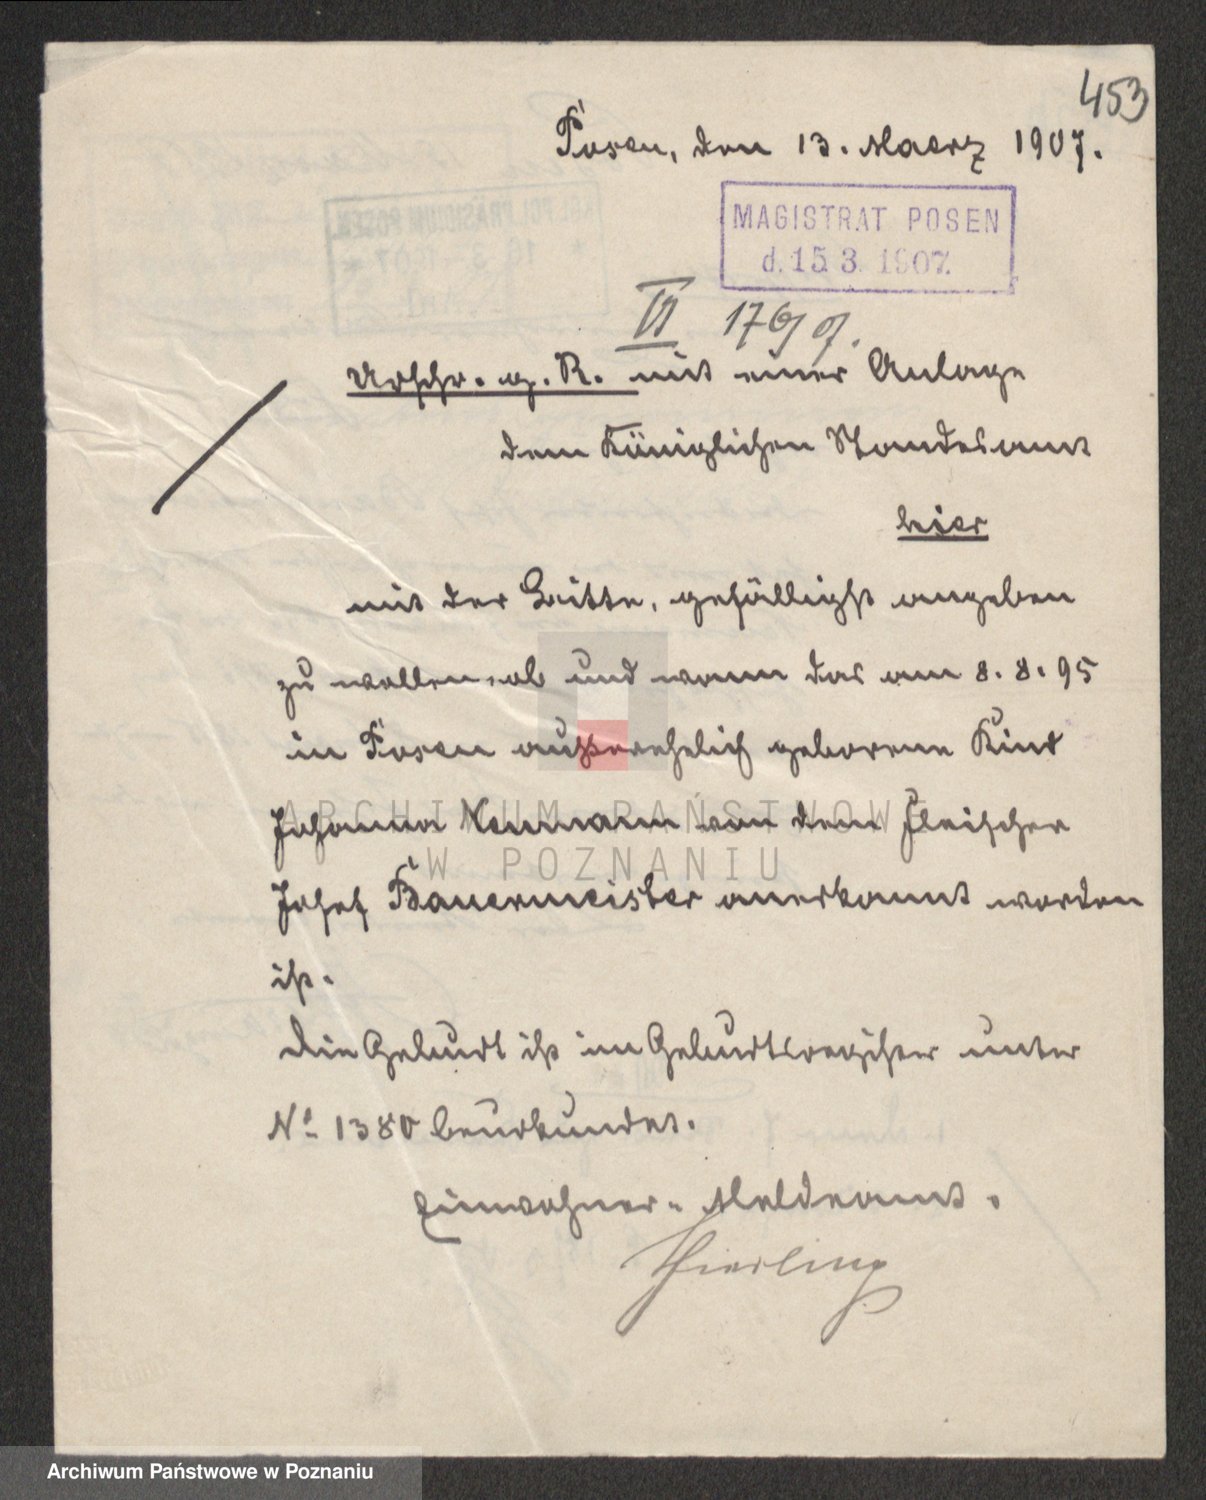 453
Posen, den 13. Maerz 1907.
MAGISTRAT POSEN
d. 15 3. 1907.
VI
Urschr. g. R. mit einer Anlage
dem Königlichen Standesamt
hier
mit der Bitte, gefälligst angeben
zu wollen, ob und wann das am 8. 8. 95
in Posen außerehelich geborene Kind
Johanna Neumann von dem Fleischer
Josef Bauermeister anerkannt worden
ist.
Die Geburt ist im Geburtsregister unter
No 1380 beurkundet.
Einwohner-Meldeamt.
ARCHIWUM PAŃSTWOWE
W POZNANIU
Archiwum Państwowe w Poznaniu